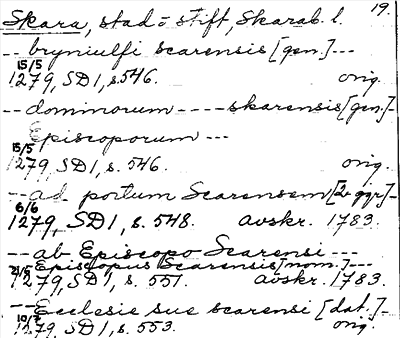 Skara, stad o stift, Skarab. l. 19.
-- bryniulfi scarensis [gen.] ---
15/5
1279, SD 1, s. 546. orig.
-- dominorum ---- skarensis [gen.] -
Episcoporum ---
15/5
1279, SD 1, s. 546. orig.
-- ad portum Scarensem [2 ggr] -
6/6
1279, SD 1, s. 548. avskr. 1783.
-- ab Episcopo Scarensi ---
-- Episcopus Scarensis [nom.] ---
21/5
1279, SD 1, s. 551. avskr. 1783.
-- Ecclesie sue scarensi [dat.] -
10/7
1279, SD 1, s. 553. orig.